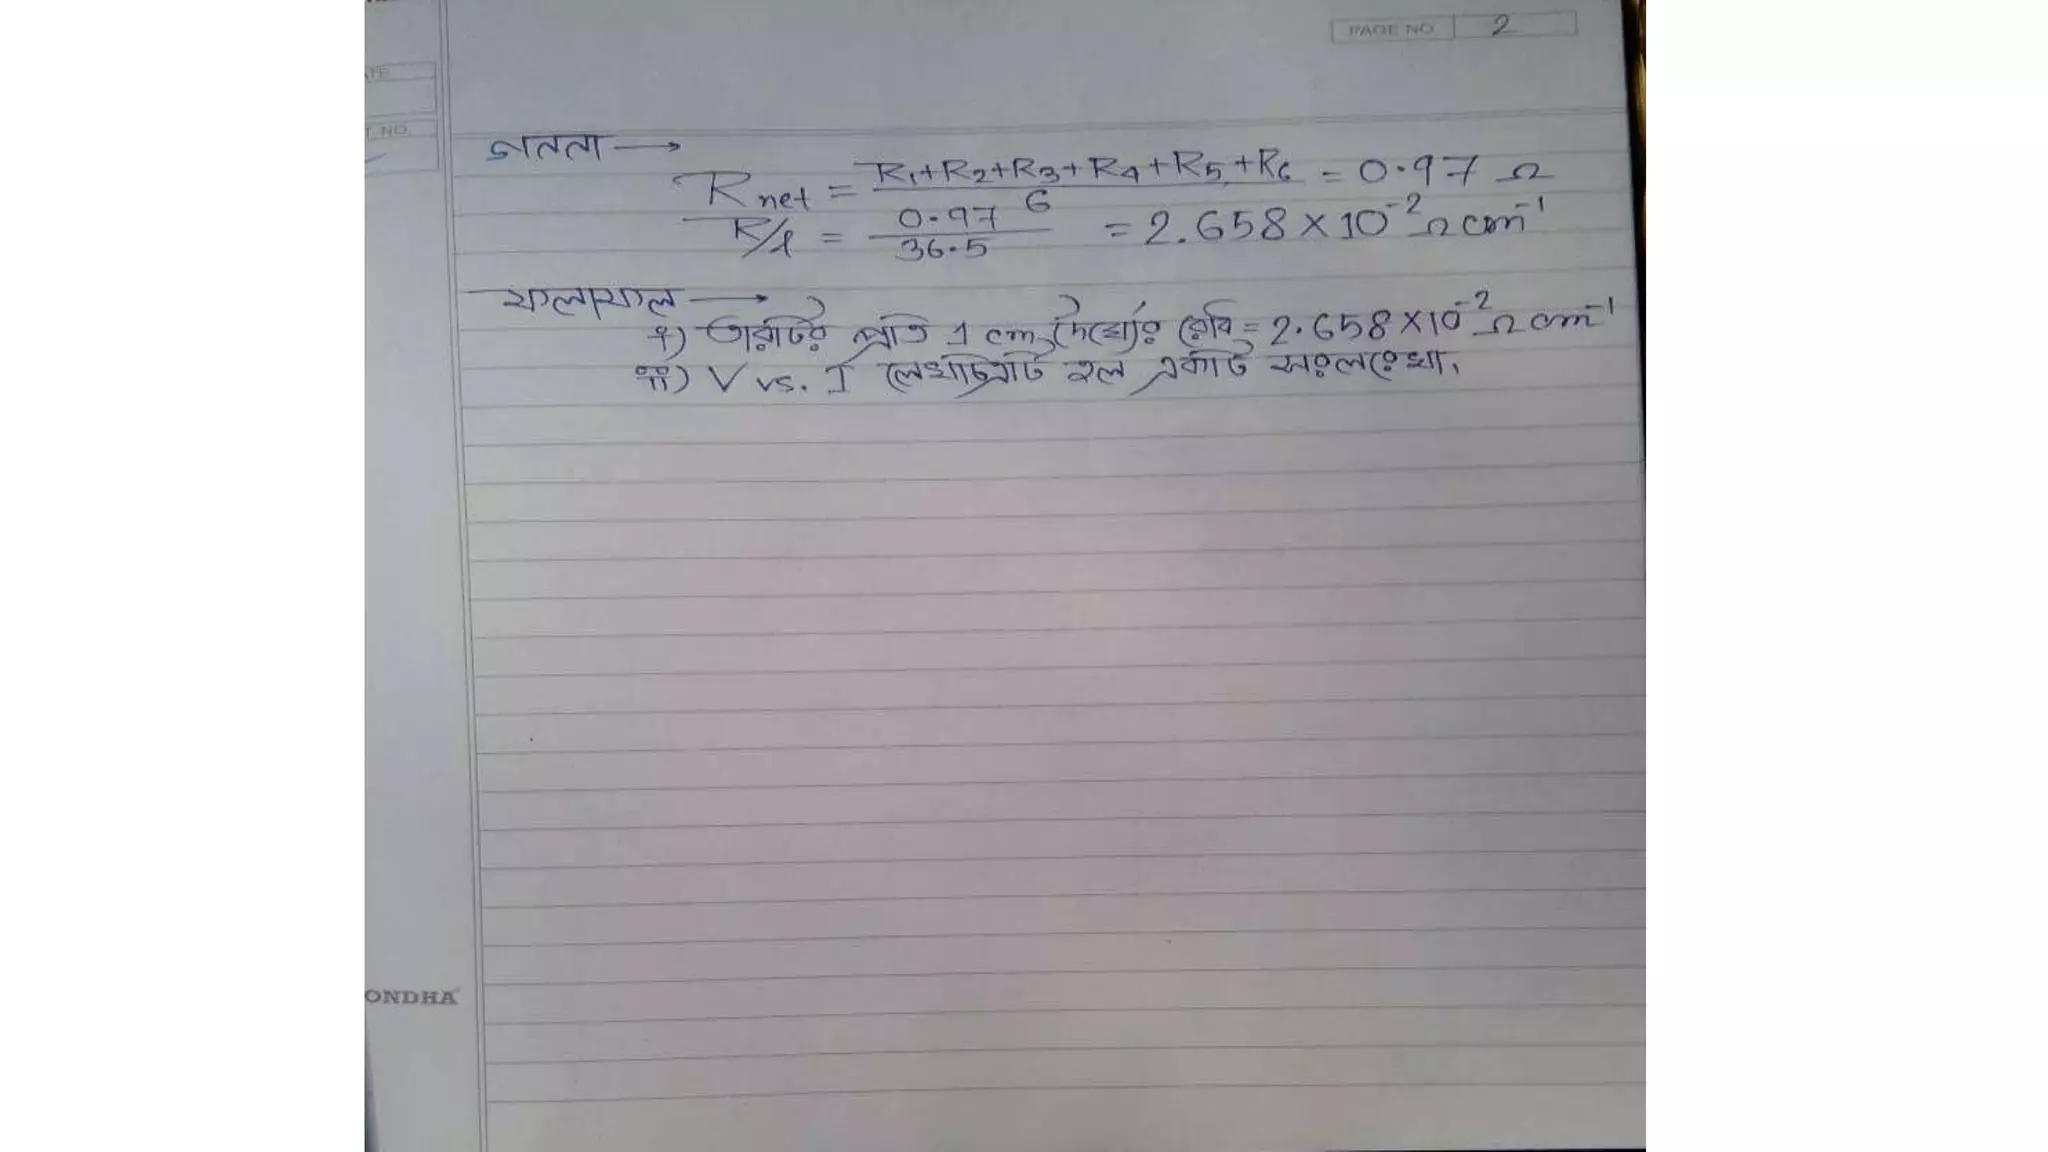 PAGE NO 2
ATE
T NO.
গননা →
R net = R₁+R₂+R₃+R₄+R₅+R₆ / 6 = 0.97 Ω
R/l = 0.97 / 36.5 = 2.658 × 10⁻² Ω cm⁻¹
ফলাফল →
i) তারটির প্রতি 1 cm দৈর্ঘ্যের রোধ = 2.658 × 10⁻² Ω cm⁻¹
ii) V vs. I লেখচিত্রটি হল একটি সরলরেখা।
ONDHA